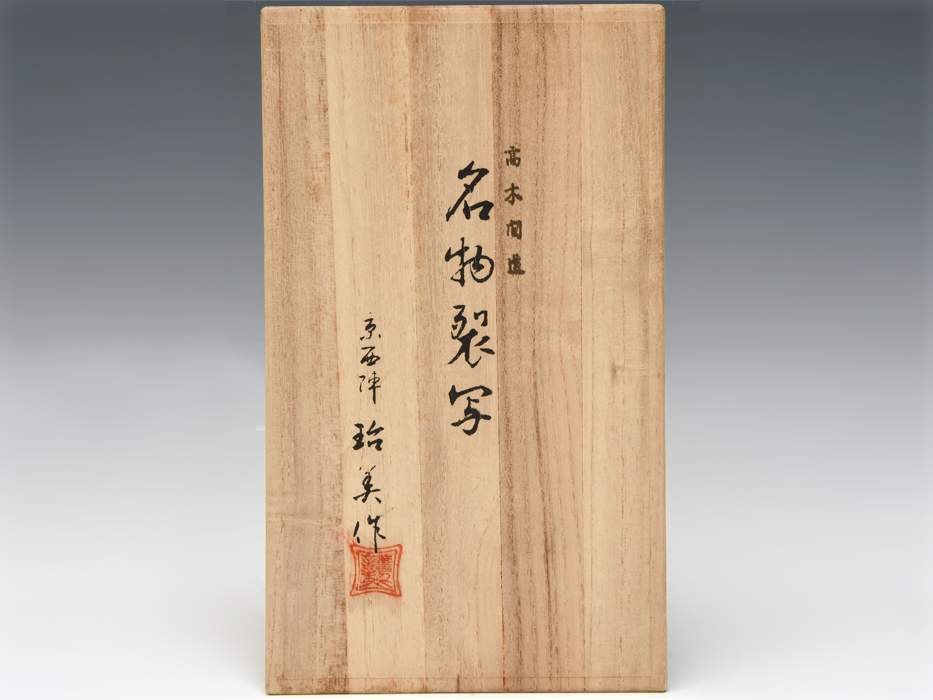 高木間道
名物裂写
京西陣 珆美作